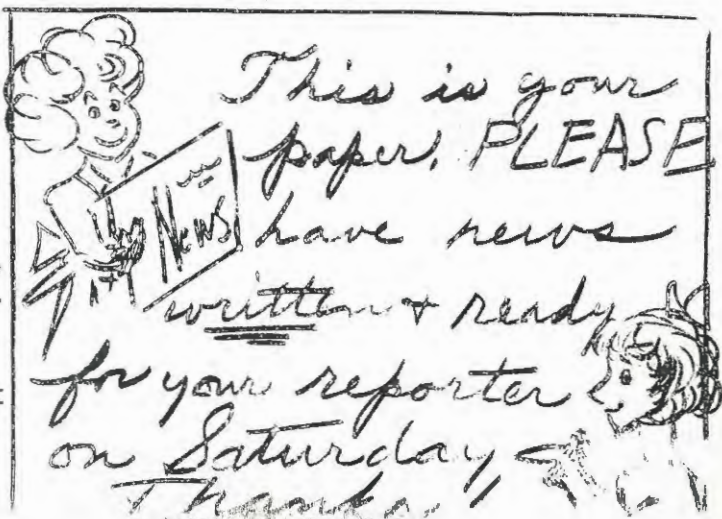 This is your
paper, PLEASE
News
have news
written + ready
for your reporter
on Saturday
Thanks!